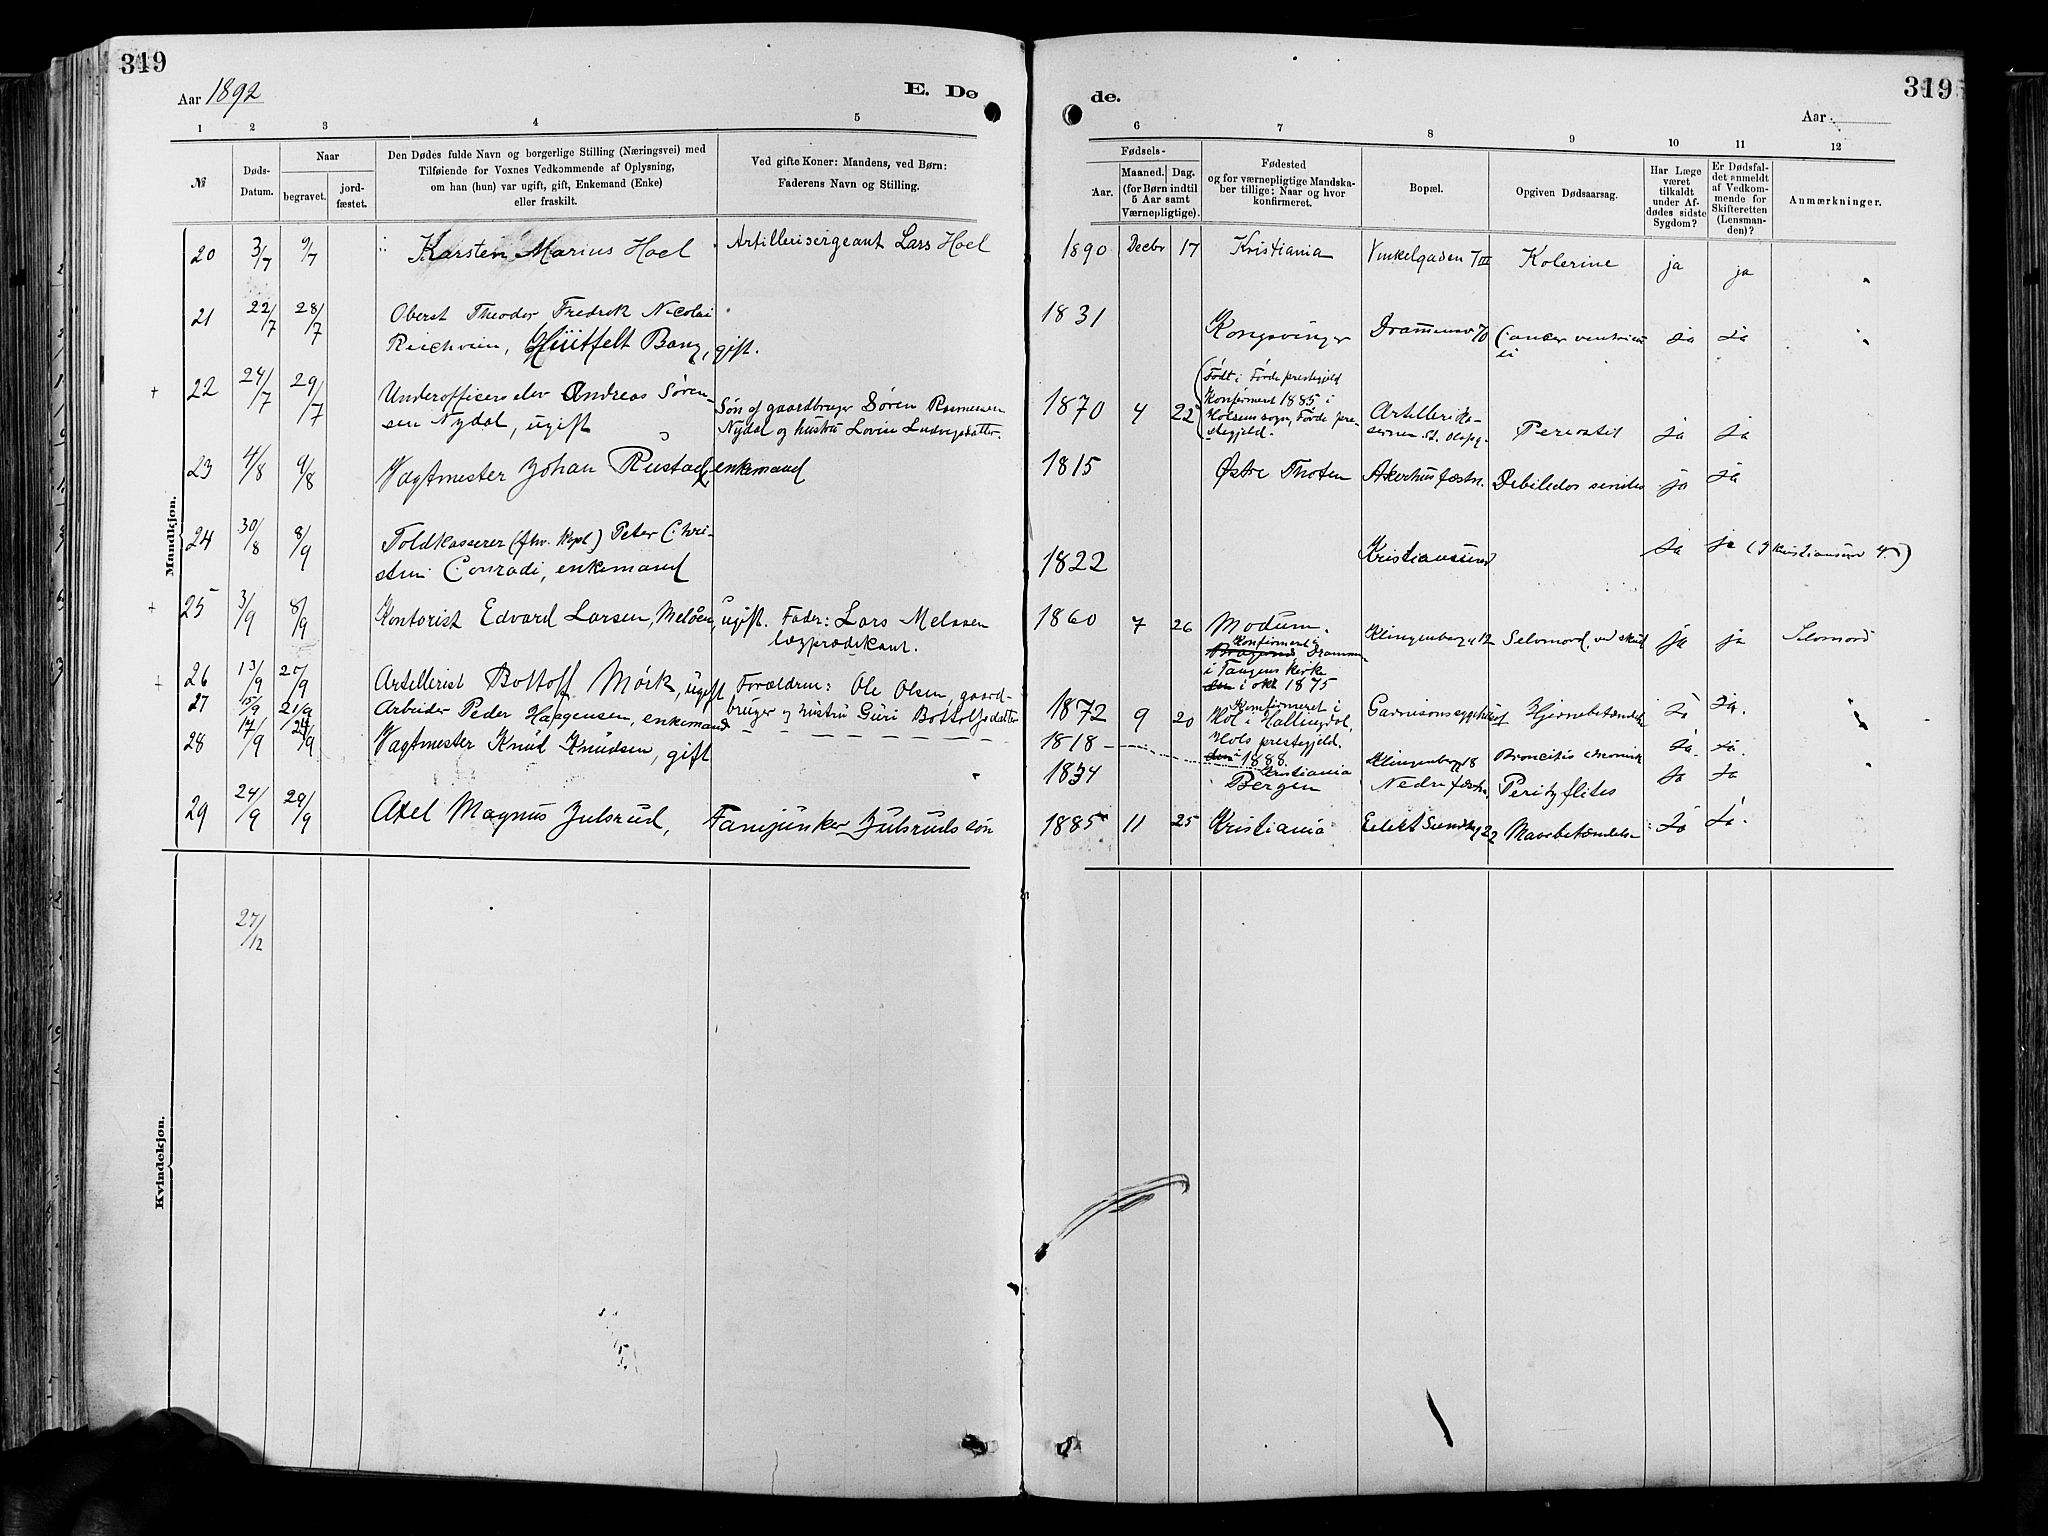 319
Aar 1892
E. Dø
1 2 3 4 5
№
Døds-
Datum.
Naar
begravet.
jord-
fæstet.
Den Dødes fulde Navn og borgerlige Stilling (Næringsvei) med
Tilføiende for Voxnes Vedkommende af Oplysning,
om han (hun) var ugift, gift, Enkemand (Enke)
eller fraskilt.
Ved gifte Koner: Mandens, ved Børn:
Faderens Navn og Stilling.
Mandkjøn.
20 3/7 9/7 Karsten Marius Hoel Artillerisergeant Lars Hoel
21 22/7 28/7 Oberst Theodor Fredrik Nicolai
Reichwein, Hüitfelt Bang, gift.
+ 22 24/7 29/7 Underofficerselev Andreas Søren-
sen Nydal, ugift
Søn af gaardbruger Søren Rasmussen
Nydal og hustru Lovise Ludvigsdatter.
23 4/8 9/8 Vagtmester Johan Rustad, enkemand
24 30/8 8/9 Toldkasserer (fhv. Kapt) Peter Chri-
stian Conradi, enkemand
+ 25 3/9 8/9 Kontorist Edvard Larsen, Meløen, ugift. Fader: Lars Melsøen
lægprædikant.
+ 26 13/9 20/9 Artillerist Bottolf Mørk, ugift Forældre: Ole Olsen, gaard-
bruger og hustru Guri Bottolfsdatter
27 15/9 21/9 Arbeider Peder Haagensen, enkemand
28 17/9 24/9 Vagtmester Knud Knudsen, gift
29 24/9 29/9 Axel Magnus Julsrud, Fanejunker Julsruds søn
27/12
Kvindekjøn.
319
de.
Aar
6 7 8 9 10 11 12
Fødsels-
Aar.
Maaned. Dag.
(for Børn indtil
5 Aar samt
Værnepligtige).
Fødested
og for værnepligtige Mandska-
ber tillige: Naar og hvor
konfirmeret.
Bopæl.
Opgiven Dødsaarsag.
Har Læge
været
tilkaldt
under Af-
dødes sidste
Sygdom?
Er Dødsfal-
det anmeldt
af Vedkom-
mende for
Skifteretten
(Lensman-
den)?
Anmærkninger.
1890 Decbr 17 Kristiania Vinkelgaden 7 III Kolerine ja ja "
1831 Kongsvinger Drammensv 70 Cancer ventricu
li ja ja "
1870 4 22 Født i Førde prestegjeld
Konfirmert 1885 i
Holsens sogn, Førde pre-
stegjeld.
Artilleri Ka-
sernen St. Olafsg. Periostit ja ja
1815 Østre Thoten Akershus fæstn. Debilitas senilis ja ja
1822 Kristianssund ja ja (I Kristianssund N.)
1860 7 26 Modum.
Konfirmert i
Bragernes Drammen
i Tangens kirke
den i okt 1875
Klingenbergg 12 Selvmord, ved skud ja ja Selvmord
1872 9 20 Konfirmeret i
Hol i Hallingdal,
Hols prestegjeld.
den i 1888.
Garnisonssygehuset Hjernebetændelse ja ja.
1818 Kristiania Klingenbergg 18 Broncitis chronica ja ja.
1834 Bergen Nedre fæstn. Perityflitis ja ja "
1885 11 25 Kristiania Eilert Sundtsg 22 Mavebetændelse ja ja.